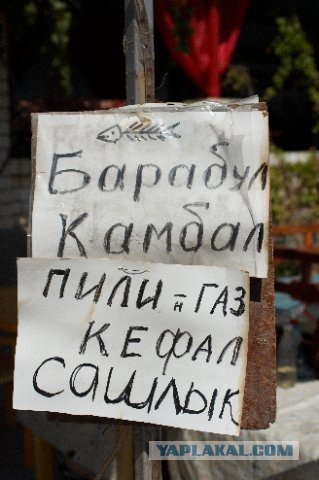 Барабул
Камбал
ПИЛИнГАЗ
КЕФАЛ
САШЛЫК
YAPLAKAL.COM